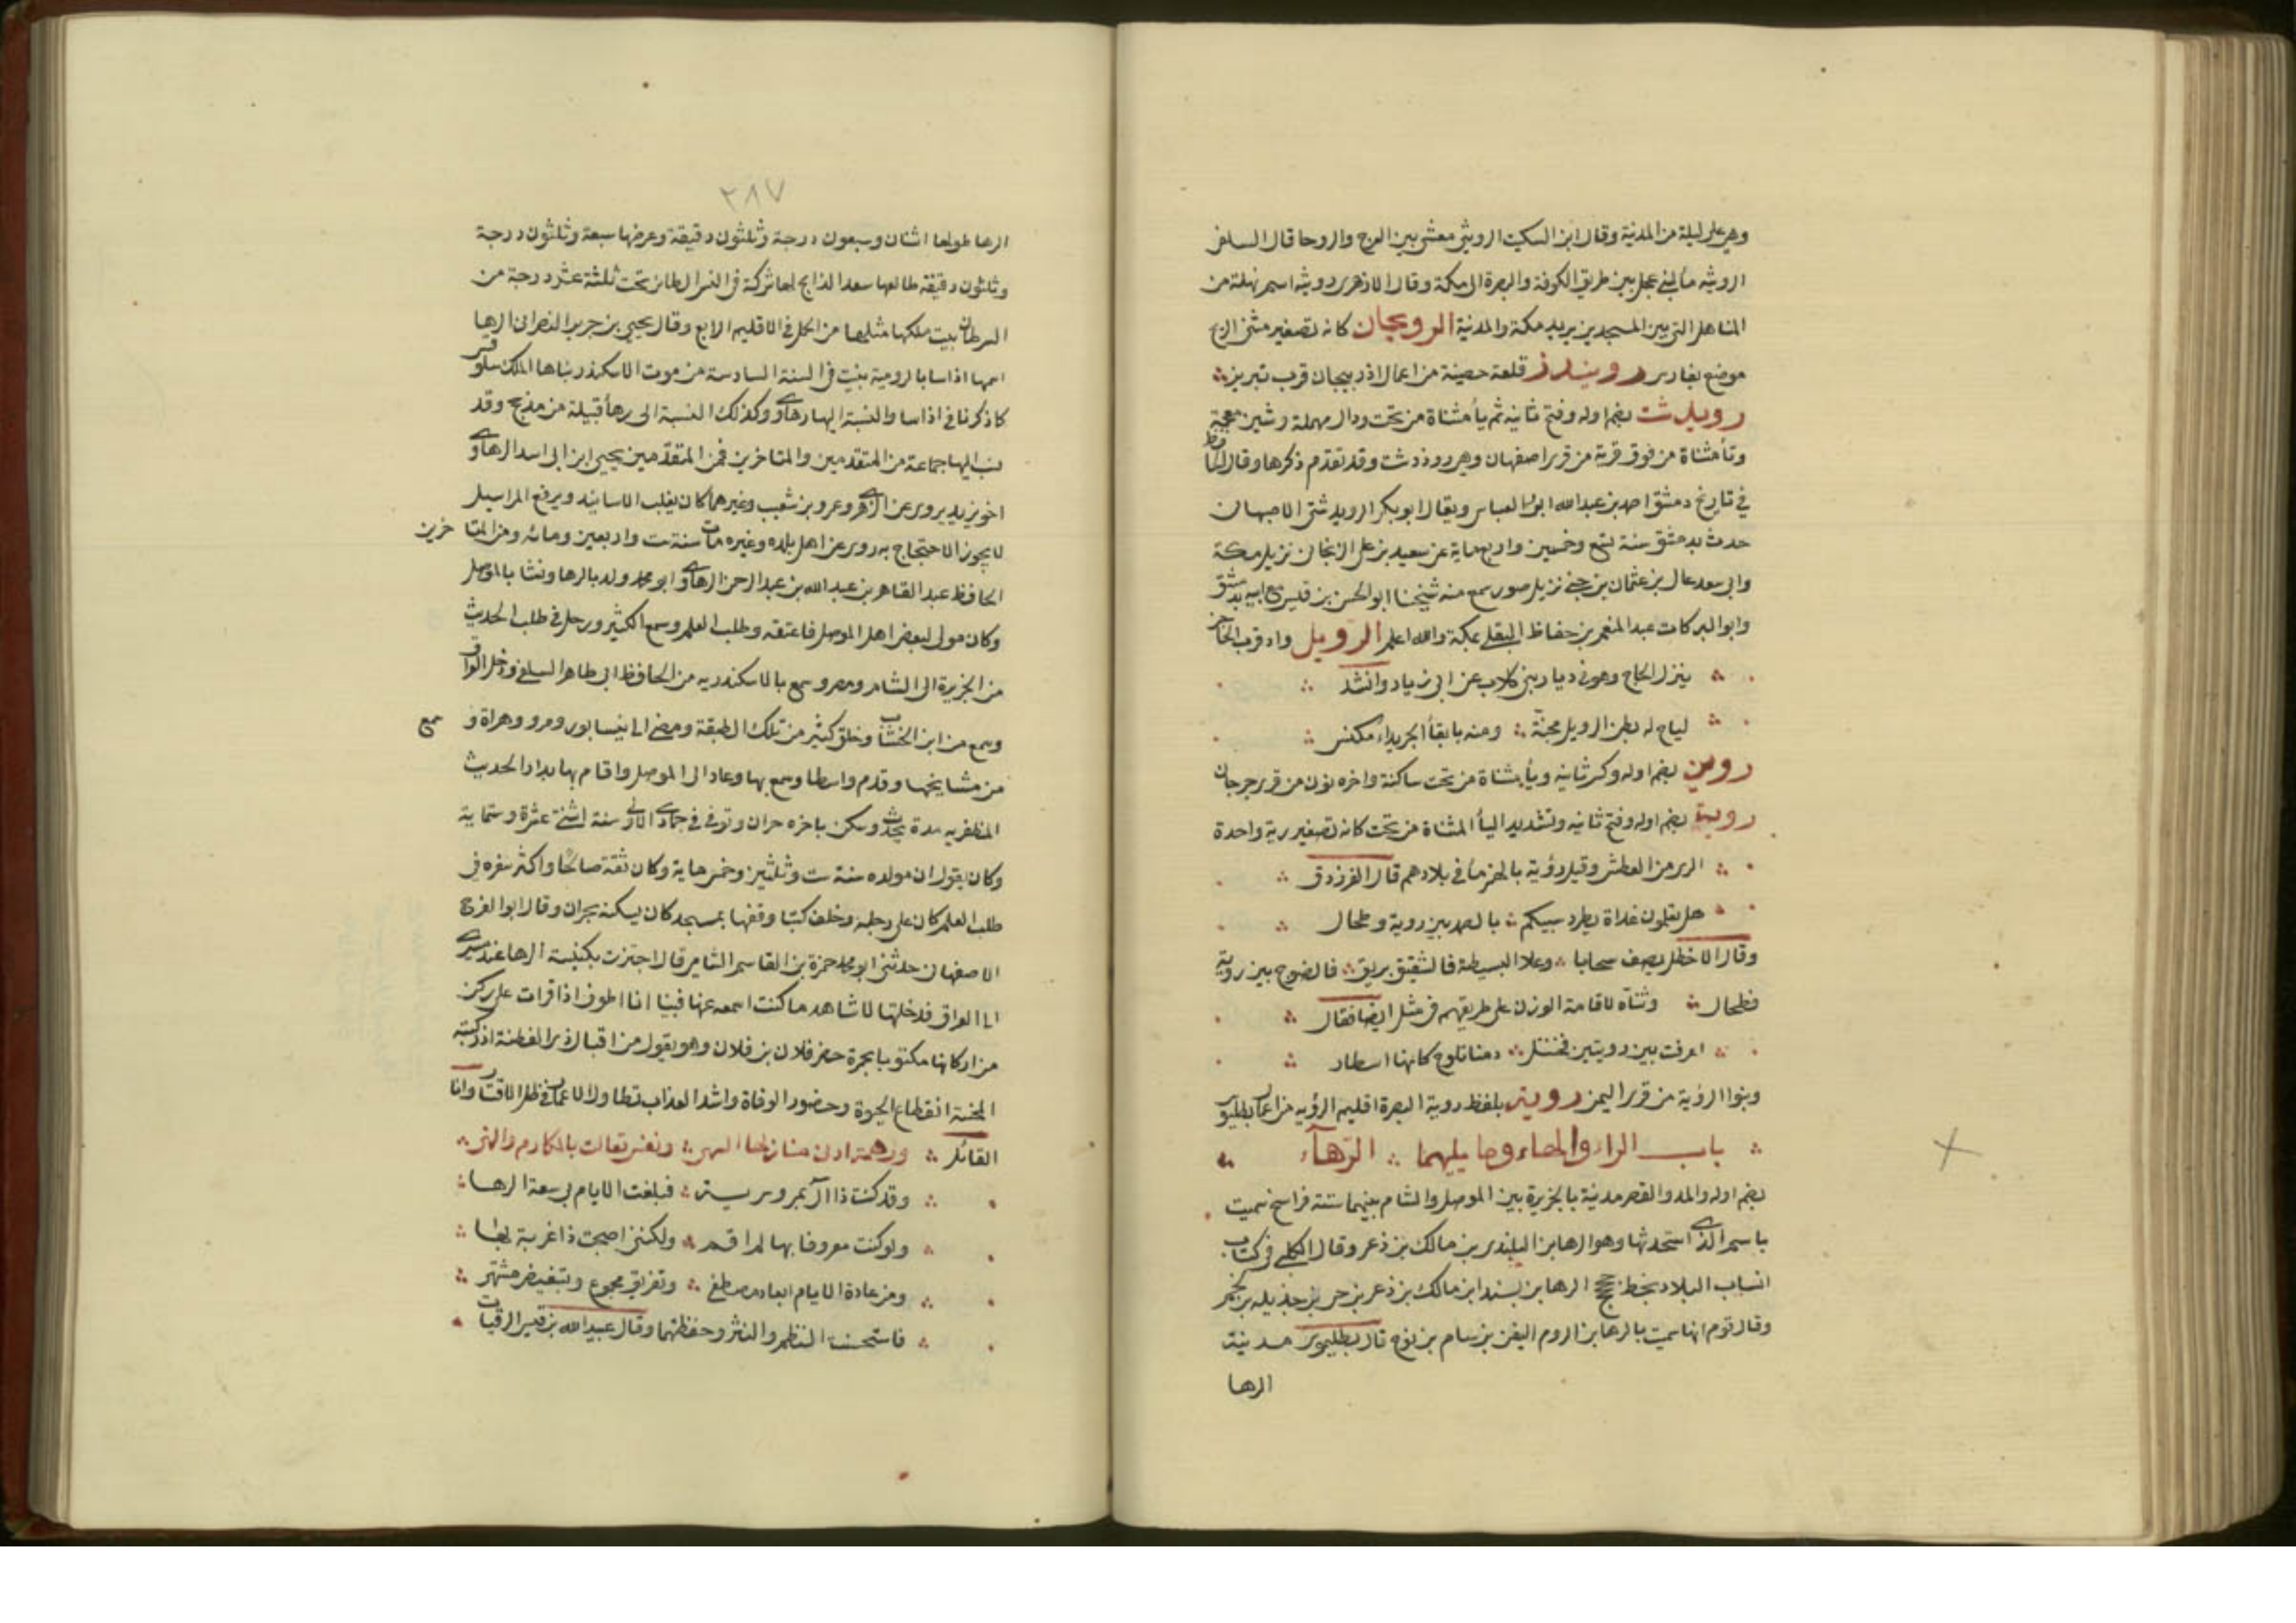 وهي على ليلة من المدينة وقال ابن السكيت الرويثة معشى بين العرج والروحا قال السلفي
الرويثه ما لبني عجل بين طريق الكوفة والبصرة الى مكة وقال الازهري رويثه اسم نهلة من
المناهل التي بين المسجدين يريد مكة والمدينة الرويحان كانه تصغير مثنى الريح
موضع بفارس رويندز قلعة حصينة من اعمال اذربيجان قرب تبريز
رويدشت بضم اوله وفتح ثانيه ثم يأ مثناة من تحت ودال مهملة وشين معجمة
وتأ مثناة من فوق قرية من قرى اصفهان وهي روذدشت وقد تقدم ذكرها وقال الحافظ
في تاريخ دمشق احمد بن عبدالله ابو العباس ويقال ابو بكر الرويدشتي الاصبهاني
حدث بدمشق سنة تسع وخمسين واربع ماية عن سعيد بن علي الزنجاني نزيل مكة
وابي سعد عالي بن عثمان بن جني نزيل صور سمع منه شيخنا ابو الحسن بن قبيس مع ابيه بدمشق
وابو البركات عبد المنعم بن حفاظ البقلي بمكة والله اعلم الرويل واد قرب الحاجر
ينزل الحاج وهو في ديار بني كلاب عن ابي زياد وانشد
لياح له بطن الرويل مجنة ومنه بابقأ الجريداء مكنس
روين بضم اوله وكسر ثانيه ويأ مثناة من تحت ساكنة واخره نون من قرى جرجان
روية بضم اوله وفتح ثانيه وتشديد اليأ المثناة من تحت كانه تصغير رية واحدة
الري من العطش وقيل رؤية بالهمز ما في بلادهم قال الفرزدق
هل تعلمون غداة يطرد سبيكم بالصمد بين روية وطحال
وقال الاخطل يصف سحابا وعلا البسيطة فالشقيق بريق فالضوج بين روية
فطحال وثناه لاقامة الوزن على طريقهم في مثل ايضا فقال
اعرفت بين رويتين فحنبل دمنا تلوح كانها اسطار
وبنوا الرؤية من قرى اليمن روية بلفظ روية البصرة اقليم الرؤيه من اعمال بطليوس
باب الراء والهاء وما يليهما الرهآء
بضم اوله والمد والقصر مدينة بالجزيرة بين الموصل والشام بينهما ستة فراسخ سميت
باسم الذي استحدثها وهو الرها بن البلندى بن مالك بن ذعر وقال الكلبي في كتاب
انساب البلاد بخط حجحج الرها بن سبند ابن مالك بن ذعر بن حجر بن جذيله بن لخم
وقال قوم انها سميت بالرها بن الروم اليفن بن سام بن نوح قال بطليموس مدينة
الرها
٢٨٧
الرها طولها اثنان وسبعون درجة وثلثون دقيقة وعرضها سبعة وثلثون درجة
وثلثون دقيقة طالعها سعد الذابح لها شركة في النسر الطائر تحت ثلثة عشر درجة من
السرطان بيت ملكها مثلها من الحمل في الاقليم الرابع وقال يحيى بن جرير النصراني الرها
اسمها اذاسا بالرومية بنيت في السنة السادسة من موت الاسكندر بناها الملك سلوقس
كما ذكرنا في اذاسا والنسبة اليها رهاوي وكذلك النسبة الى رهأ قبيلة من مذحج وقد
نسب اليها جماعة من المتقدمين والمتاخرين فمن المتقدمين يحيى ابن ابي اسد الرهاوي
اخو زيد يروي عن الزهري وعمرو بن شعيب وغيرهما كان يقلب الاسانيد ويرفع المراسيل
لا يجوز الاحتجاج به روى عن اهل بلده وغيره مات سنة ست واربعين ومائه ومن المتاخرين
الحافظ عبد القاهر بن عبد الله بن عبد الرحمن الرهاوي ابو محمد ولد بالرها ونشا بالموصل
وكان مولى لبعض اهل الموصل فاعتقه وطلب العلم وسمع الكثير ورحل في طلب الحديث
من الجزيرة الى الشام ومصر وسمع بالاسكندريه من الحافظ ابي طاهر السلفي ودخل العراق
وسمع من ابن الخشاب وخلق كثير من تلك الطبقة ومضى الى نيسابور ومرو وهراة وسمع
من مشايخها وقدم واسطا وسمع بها وعاد الى الموصل واقام بها بدار الحديث
المظفريه مدة يحدث وسكن باخره حران وتوفي في جمادى الاولى سنة اثنتي عشرة وستماية
وكان يقول ان مولده سنة ست وثلثين وخمس ماية وكان ثقة صالحا واكثر سفره في
طلب العلم كان على رجليه وخلف كتبا وقفها بمسجد كان يسكنه بحران وقال ابو الفرج
الاصفهاني حدثني ابو محمد حمزة بن القاسم الشامي قال اجتزت بكنيسة الرها عند مسيري
الى العراق فدخلتها لاشاهد ما كنت اسمعه عنها فبينا انا اطوف اذا قرات على ركن
من اركانها مكتوبا بحمرة حضر فلان بن فلان وهو يقول من اقبال ذي الفطنة اذ ركبته
المحنة انقطاع الحيوة وحضور الوفاة واشد العذاب تطاول الاعمار في ظل الاقتار وانا
القائل ولي همة ادنى منازلها السهى ونفس تعالت بالمكارم والنهى
وقد كنت ذا ال بمرو سرية فبلغت الايام بي بيعة الرها
ولو كنت معروفا بها لم اقم ولكنني اصبحت ذا غربة بها
ومن عادة الايام ابعاد مصطفى وتفريق مجموع وتبغيض مشتهى
فاستحسنت النظم والنثر وحفظتهما وقال عبيد الله بن قيس الرقيات